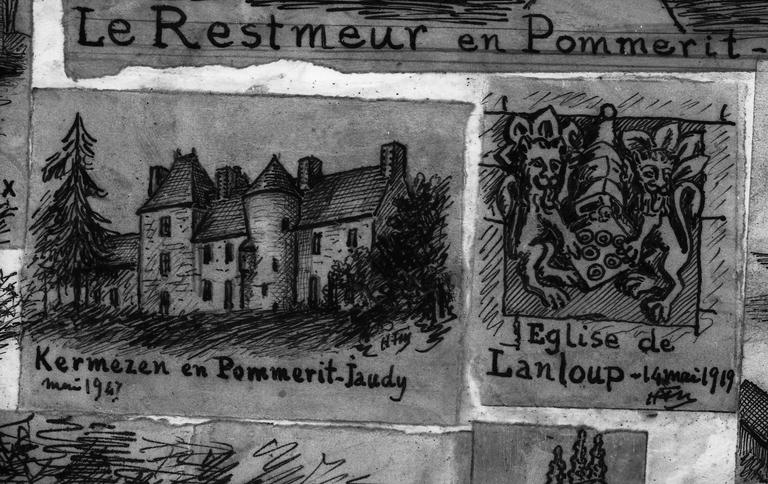 Le Restmeur en Pommerit-
Kermezen en Pommerit-Jaudy
mai 1947
Eglise de
Lanloup - 14 mai 1919